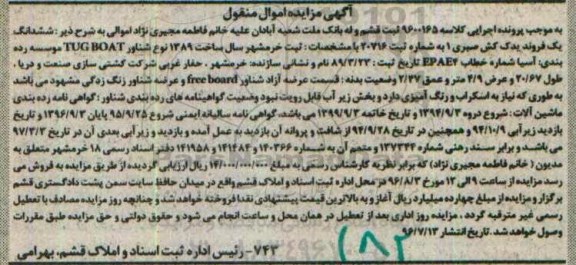 آگهی مزایده اموال منقول
به موجب پرونده اجرایی کلاسه ۹۶۰۰۱۶۵ ثبت قشم و له بانک ملت شعبه آبادان علیه خانم فاطمه مجیری نژاد اموالی به شرح ذیر : ششدانگ
یک فروند یدک کش صبری ۱ به شماره ثبت ۲۰۷۱۶ با مشخصات : ثبت خرمشهر سال ساخت ۱۳۸۹ نوع شناور TUG BOAT موسسه رده
بندی : آسیا شماره خطاب EPAE۴ تاریخ ثبت : ۸۹/۳/۲۲ نام و نشانی سازنده: خرمشهر ، حفار غربی شرکت کشتی سازی صنعت و دریا ،
طول ۲۰/۶۷ و عرض ۴/۹ متر و عمق ۲/۴۷ وضعیت بدنه : قسمت عرضه آزاد شناور free board و عرضه شناور زنگ زدگی مشهود می باشد
به طوری که نیاز به اسکراب و رنگ آمیزی دارد و بخش زیر آب قابل رویت نبود وضعیت گواهینامه های رده بندی شناور : گواهی نامه رده بندی
ماشین آلات : شروع دروه ۱۳۹۴/۹/۳ و تاریخ خاتمه ۱۳۹۹/۹/۳ می باشد، گواهی نامه سالیانه ایمنی شروع ۹۵/۹/۲۵ پایان ۱۳۹۶/۹/۳ و تاریخ
بازدید زیر آبی ۹۴/۱۰/۹ و همچنین در تاریخ ۹۴/۹/۲۸ از شافت و پروانه آن بازدید به عمل آمده و بازدید و زیر آبی بعدی آن در تاریخ ۹۷/۳/۲
می باشد و برابر سند رهنی شماره ۱۳۷۳۴۴ و متمم آن به شماره ۱۴۰۳۶۶ و ۱۴۱۴۸۴ و ۱۴۱۹۵۸ دفتر اسناد رسمی ۱۸ خرمشهر متعلق به
مدیون ( خانم فاطمه مجیری نژاد) که برابر نظریه کارشناس رسمی به مبلغ ۱۴/۰۰۰/۰۰۰/۰۰۰ ریال ارزیابی گردیده از طریق مزایده به فروش می
رسد مزایده از ساعت ۹ الی ۱۲ مورخ ۹۶/۸/۳ در محل اداره ثبت اسناد و املاک قشم واقع در میدان حافظ سایت سمن پشت دادگستری قشم
برگزار و مزایده از مبلغ چهارده میلیارد ریال آغاز و به بالاترین قیمت پیشنهادی نقدا فروخته خواهد شد و چنانچه روز مزایده مصادف با تعطیل
رسمی غیر مترقبه گردد . مزایده روز اداری بعد از تعطیل در همان محل و ساعت انجام می شود و حقوق دولتی و حق مزایده طبق مقررات
وصول خواهد شد. تاریخ انتشار ۹۶/۷/۱۳
۷۴۳- رئیس اداره ثبت اسناد و املاک قشم، بهرامی